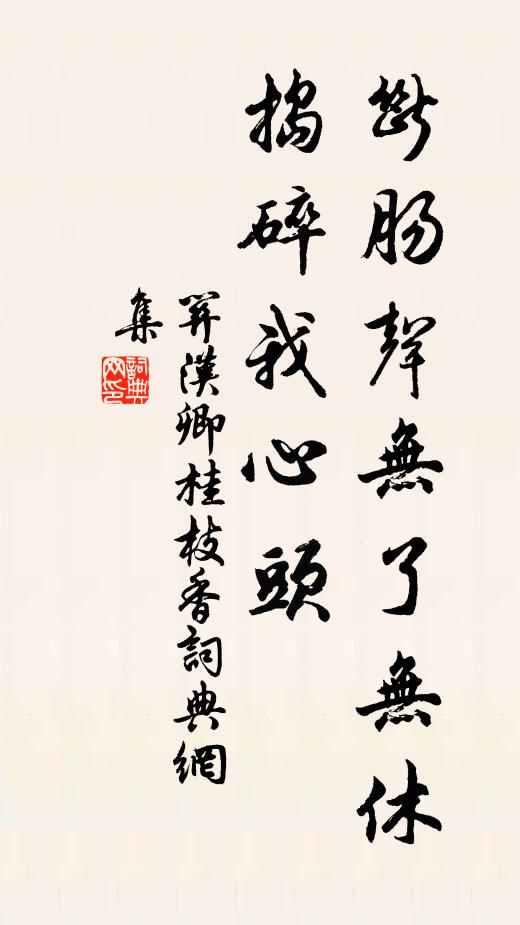 斷腸聲無了無休
搗碎我心頭
關漢卿桂枝香詞典網
集
詞典
网印